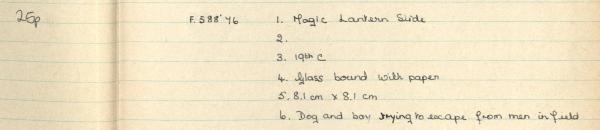 25p F.588'76 1. Magic Lantern Slide
2.
3. 19th C
4. Glass bound with paper
5. 8.1 cm x 8.1 cm
6. Dog and boy trying to escape from men in field